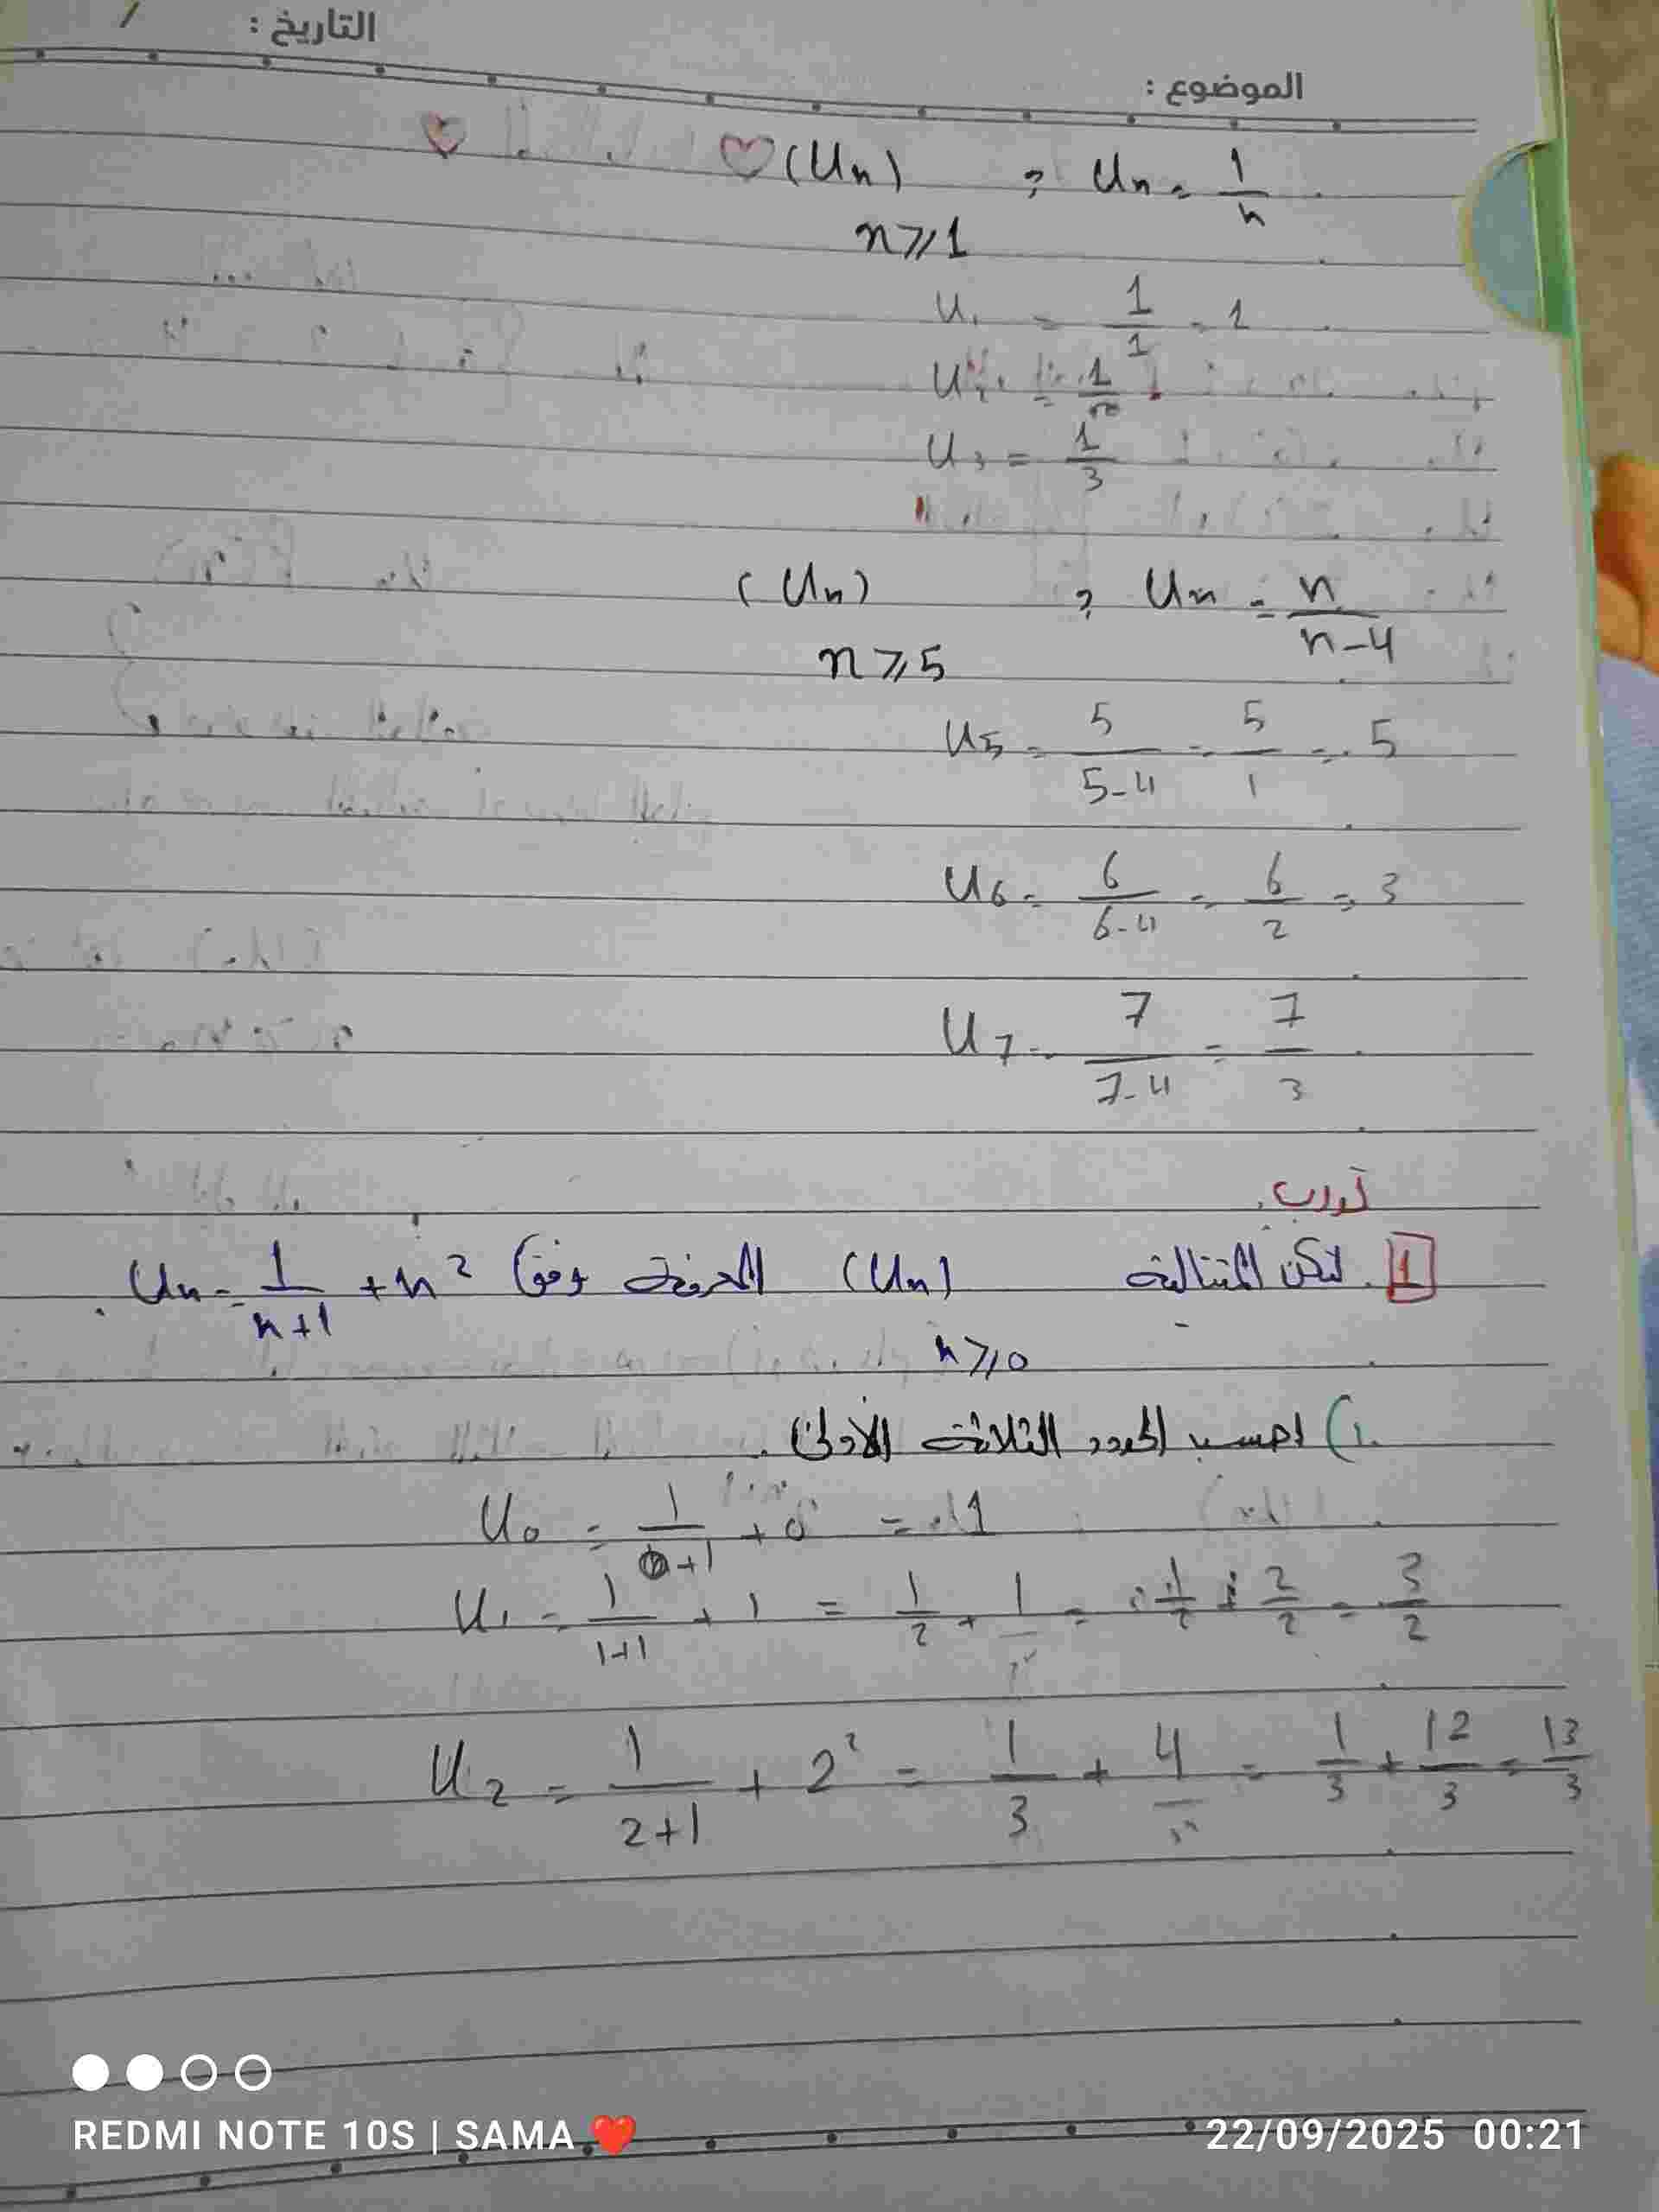 التاريخ : /
الموضوع :
♡ (Un) , Un = 1/n
n ⩾ 1
U1 = 1/1 = 1
U2 = 1/2
U3 = 1/3
(Un) , Un = n/n-4
n ⩾ 5
U5 = 5/5-4 = 5/1 = 5
U6 = 6/6-4 = 6/2 = 3
U7 = 7/7-4 = 7/3
تدرب
1 . لتكن المتتالية (Un) المعرفة وفق Un = 1/n+1 + n²
n ⩾ 0
1) احسب الحدود الثلاثة الأولى .
U0 = 1/0+1 + 0 = 1
U1 = 1/1+1 + 1 = 1/2 + 1 = 1/2 + 2/2 = 3/2
U2 = 1/2+1 + 2² = 1/3 + 4 = 1/3 + 12/3 = 13/3
REDMI NOTE 10S | SAMA ❤️ 22/09/2025 00:21